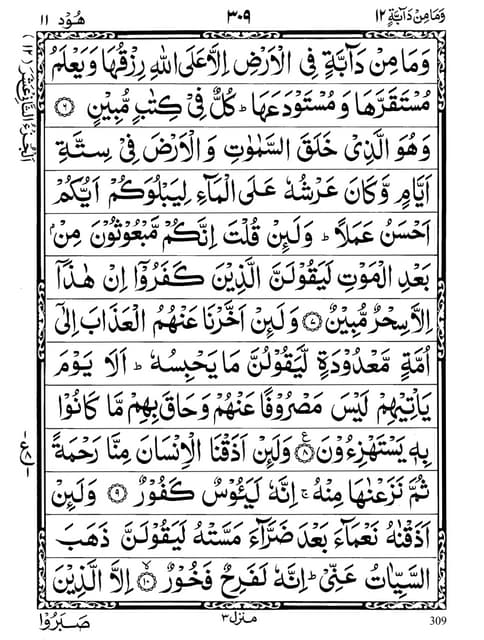 وَمَا مِنْ دَآبَّةٍ ١٢
٣٠٩
هُوْد ١١
اَلْجُزْءُ الثَّانِيْ عَشَرَ (١٢)
وَمَا مِنْ دَآبَّةٍ فِي الْاَرْضِ اِلَّا عَلَى اللّٰهِ رِزْقُهَا وَيَعْلَمُ
مُسْتَقَرَّهَا وَمُسْتَوْدَعَهَا ؕ كُلٌّ فِيْ كِتٰبٍ مُّبِيْنٍ ﴿٦﴾
وَهُوَ الَّذِيْ خَلَقَ السَّمٰوٰتِ وَالْاَرْضَ فِيْ سِتَّةِ
اَيَّامٍ وَّكَانَ عَرْشُهٗ عَلَى الْمَآءِ لِيَبْلُوَكُمْ اَيُّكُمْ
اَحْسَنُ عَمَلًا ؕ وَلَىِٕنْ قُلْتَ اِنَّكُمْ مَّبْعُوْثُوْنَ مِنْۢ
بَعْدِ الْمَوْتِ لَيَقُوْلَنَّ الَّذِيْنَ كَفَرُوْۤا اِنْ هٰذَاۤ
اِلَّا سِحْرٌ مُّبِيْنٌ ﴿٧﴾ وَلَىِٕنْ اَخَّرْنَا عَنْهُمُ الْعَذَابَ اِلٰۤى
اُمَّةٍ مَّعْدُوْدَةٍ لَّيَقُوْلُنَّ مَا يَحْبِسُهٗ ؕ اَلَا يَوْمَ
يَاْتِيْهِمْ لَيْسَ مَصْرُوْفًا عَنْهُمْ وَحَاقَ بِهِمْ مَّا كَانُوْا
بِهٖ يَسْتَهْزِءُوْنَ ﴿٨﴾ ع وَلَىِٕنْ اَذَقْنَا الْاِنْسَانَ مِنَّا رَحْمَةً
ثُمَّ نَزَعْنٰهَا مِنْهُ ۚ اِنَّهٗ لَيَـُٔوْسٌ كَفُوْرٌ ﴿٩﴾ وَلَىِٕنْ
اَذَقْنٰهُ نَعْمَآءَ بَعْدَ ضَرَّآءَ مَسَّتْهُ لَيَقُوْلَنَّ ذَهَبَ
السَّيِّاٰتُ عَنِّيْ ؕ اِنَّهٗ لَفَرِحٌ فَخُوْرٌ ﴿١٠﴾ اِلَّا الَّذِيْنَ
صَبَرُوْا
منزل ٣
309